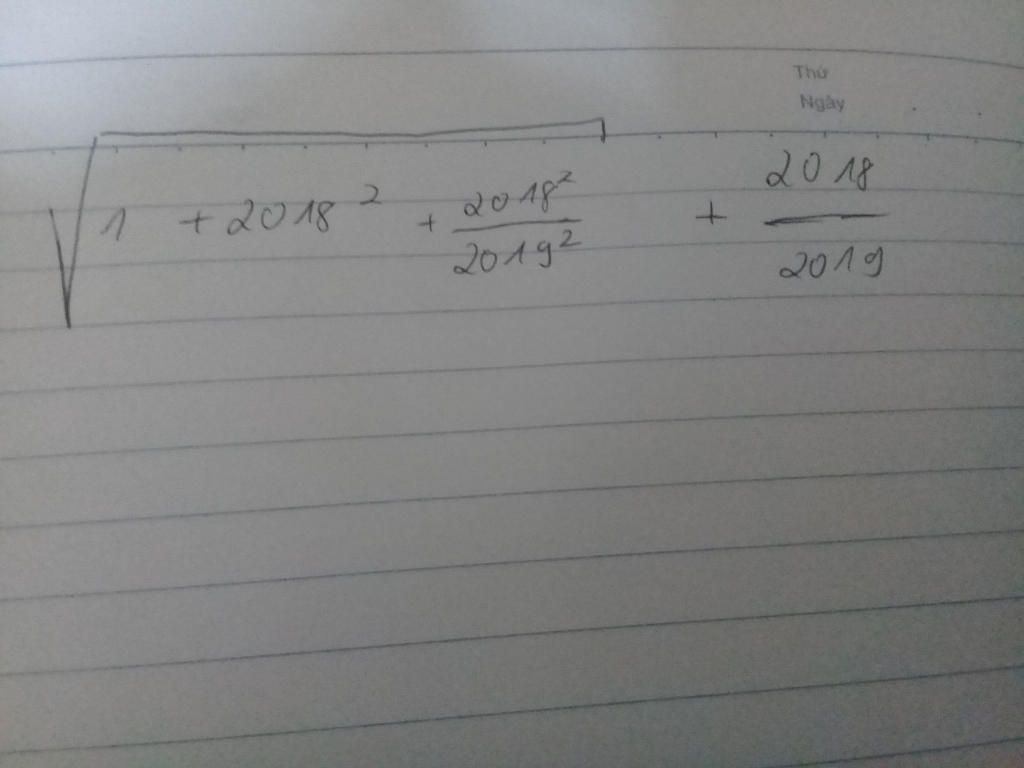 Thứ
Ngày
√(1 + 2018² + 2018²/2019²) + 2018/2019